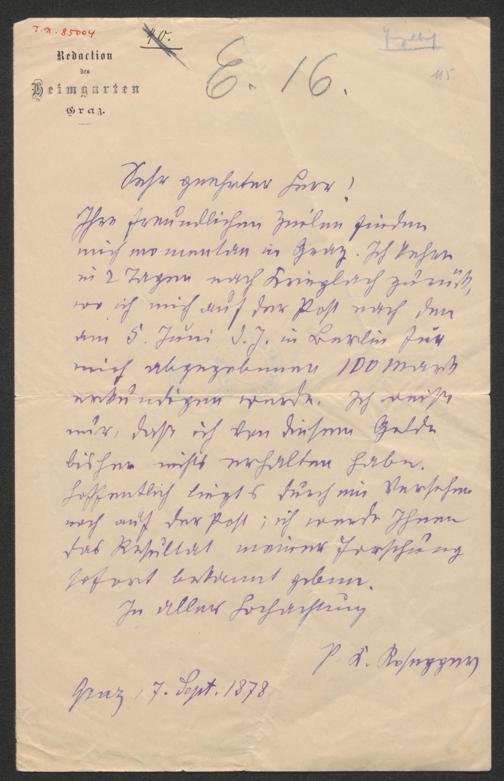 I.N. 85004
Redaction
des
Heimgarten
Graz.
E. 16.
115
Sehr geehrter Herr!
Ihre freundlichen Zeilen finden
mich momentan in Graz. Ich kehre
in 2 Tagen nach Krieglach zurück,
wo ich mich auf der Post nach den
am 5. Juni d. J. in Berlin für
mich abgegebenen 100 Mark
erkundigen werde. Ich weiß
nur, daß ich von diesem Gelde
bisher nichts erhalten habe.
Hoffentlich liegt's durch ein Versehen
noch auf der Post; ich werde Ihnen
das Resultat meiner Forschung
sofort bekannt geben.
In aller Hochachtung
P. K. Rosegger
Graz, 7. Sept. 1878